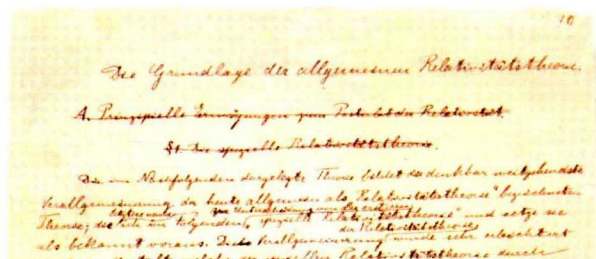 Die Grundlage der allgemeinen Relativitätstheorie.
A. Prinzipielle Erwägungen zum Postulat der Relativität.
§1. Die spezielle Relativitätstheorie.
Die im Nachfolgenden dargelegte Theorie bildet die denkbar weitgehendste
Verallgemeinerung der heute allgemein als „Relativitätstheorie" bezeichneten
Theorie; die im folgenden „spezielle Relativitätstheorie" und setze sie
der Relativitätstheorie
als bekannt voraus. Die Verallgemeinerung wurde sehr erleichtert
der speziellen Relativitätstheorie durch